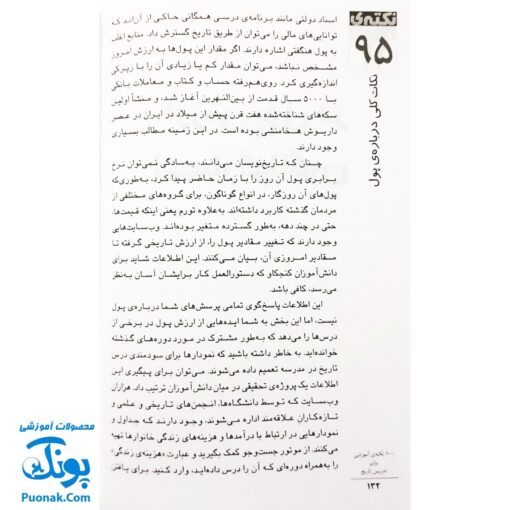 نکته‌ی
۹۵
نکات کلی درباره‌ی پول
اسناد دولتی مانند برنامه‌ی درسی همگانی حاکی از آن‌اند که
توانایی‌های مالی را می‌توان از طریق تاریخ گسترش داد. منابع اغلب
به پول هنگفتی اشاره دارند. اگر مقدار این پول‌ها به ارزش امروز
مشخص نباشد، می‌توان مقدار کم یا زیادی آن را با زیرکی
اندازه‌گیری کرد. روی‌هم‌رفته حساب و کتاب و معاملات بانکی
با ۵۰۰۰ سال قدمت از بین‌النهرین آغاز شد، و منشأ اولین
سکه‌های شناخته‌شده هفت قرن پیش از میلاد در ایران در عصر
داریوش هخامنشی بوده است. در این زمینه مطالب بسیاری
وجود دارند.
چنان که تاریخ‌نویسان می‌دانند، به‌سادگی نمی‌توان نرخ
برابری پول آن روز را با زمان حاضر پیدا کرد، به‌طوری‌که
پول‌های آن روزگار، در انواع گوناگون، برای گروه‌های مختلفی از
مردمان گذشته کاربرد داشته‌اند. به‌علاوه تورم یعنی اینکه قیمت‌ها،
حتی در چند دهه، به‌طور گسترده متغیر بوده‌اند. وب‌سایت‌هایی
وجود دارند که تغییر مقادیر پول را، از ارزش تاریخی گرفته تا
مقادیر امروزی آن، بیان می‌کنند. این اطلاعات شاید برای
دانش‌آموزان کنجکاو که دستورالعمل کار برایشان آسان به‌نظر
می‌رسد، کافی باشد.
این اطلاعات پاسخ‌گوی تمامی پرسش‌های شما درباره‌ی پول
نیست، اما این بخش به شما ایده‌هایی از ارزش پول در برخی از
درس‌ها را می‌دهد که به‌طور مشترک در مورد دوره‌های گذشته
خوانده‌اید. به خاطر داشته باشید که نمودارها برای سودمندی درس
تاریخ در مدرسه تعمیم داده می‌شوند. می‌توان برای پیگیری این
اطلاعات یک پروژه‌ی تحقیقی در میان دانش‌آموزان ترتیب داد. هزاران
وب‌سایت که توسط دانشگاه‌ها، انجمن‌های تاریخی و علمی و
تازه‌کاران علاقه‌مند اداره می‌شوند، وجود دارند که جداول و
نمودارهایی در ارتباط با درآمدها و هزینه‌های زندگی خانوارها تهیه
می‌کنند. از موتور جست‌وجو کمک بگیرید و عبارت «هزینه‌ی زندگی»
را به‌همراه دوره‌ای که آن را درس داده‌اید، وارد کنید. برای یافتن
۱۰۰ نکته‌ی آموزشی
برای
تدریس تاریخ
۱۳۲
محصولات آموزشی
پونک
Puonak.Com